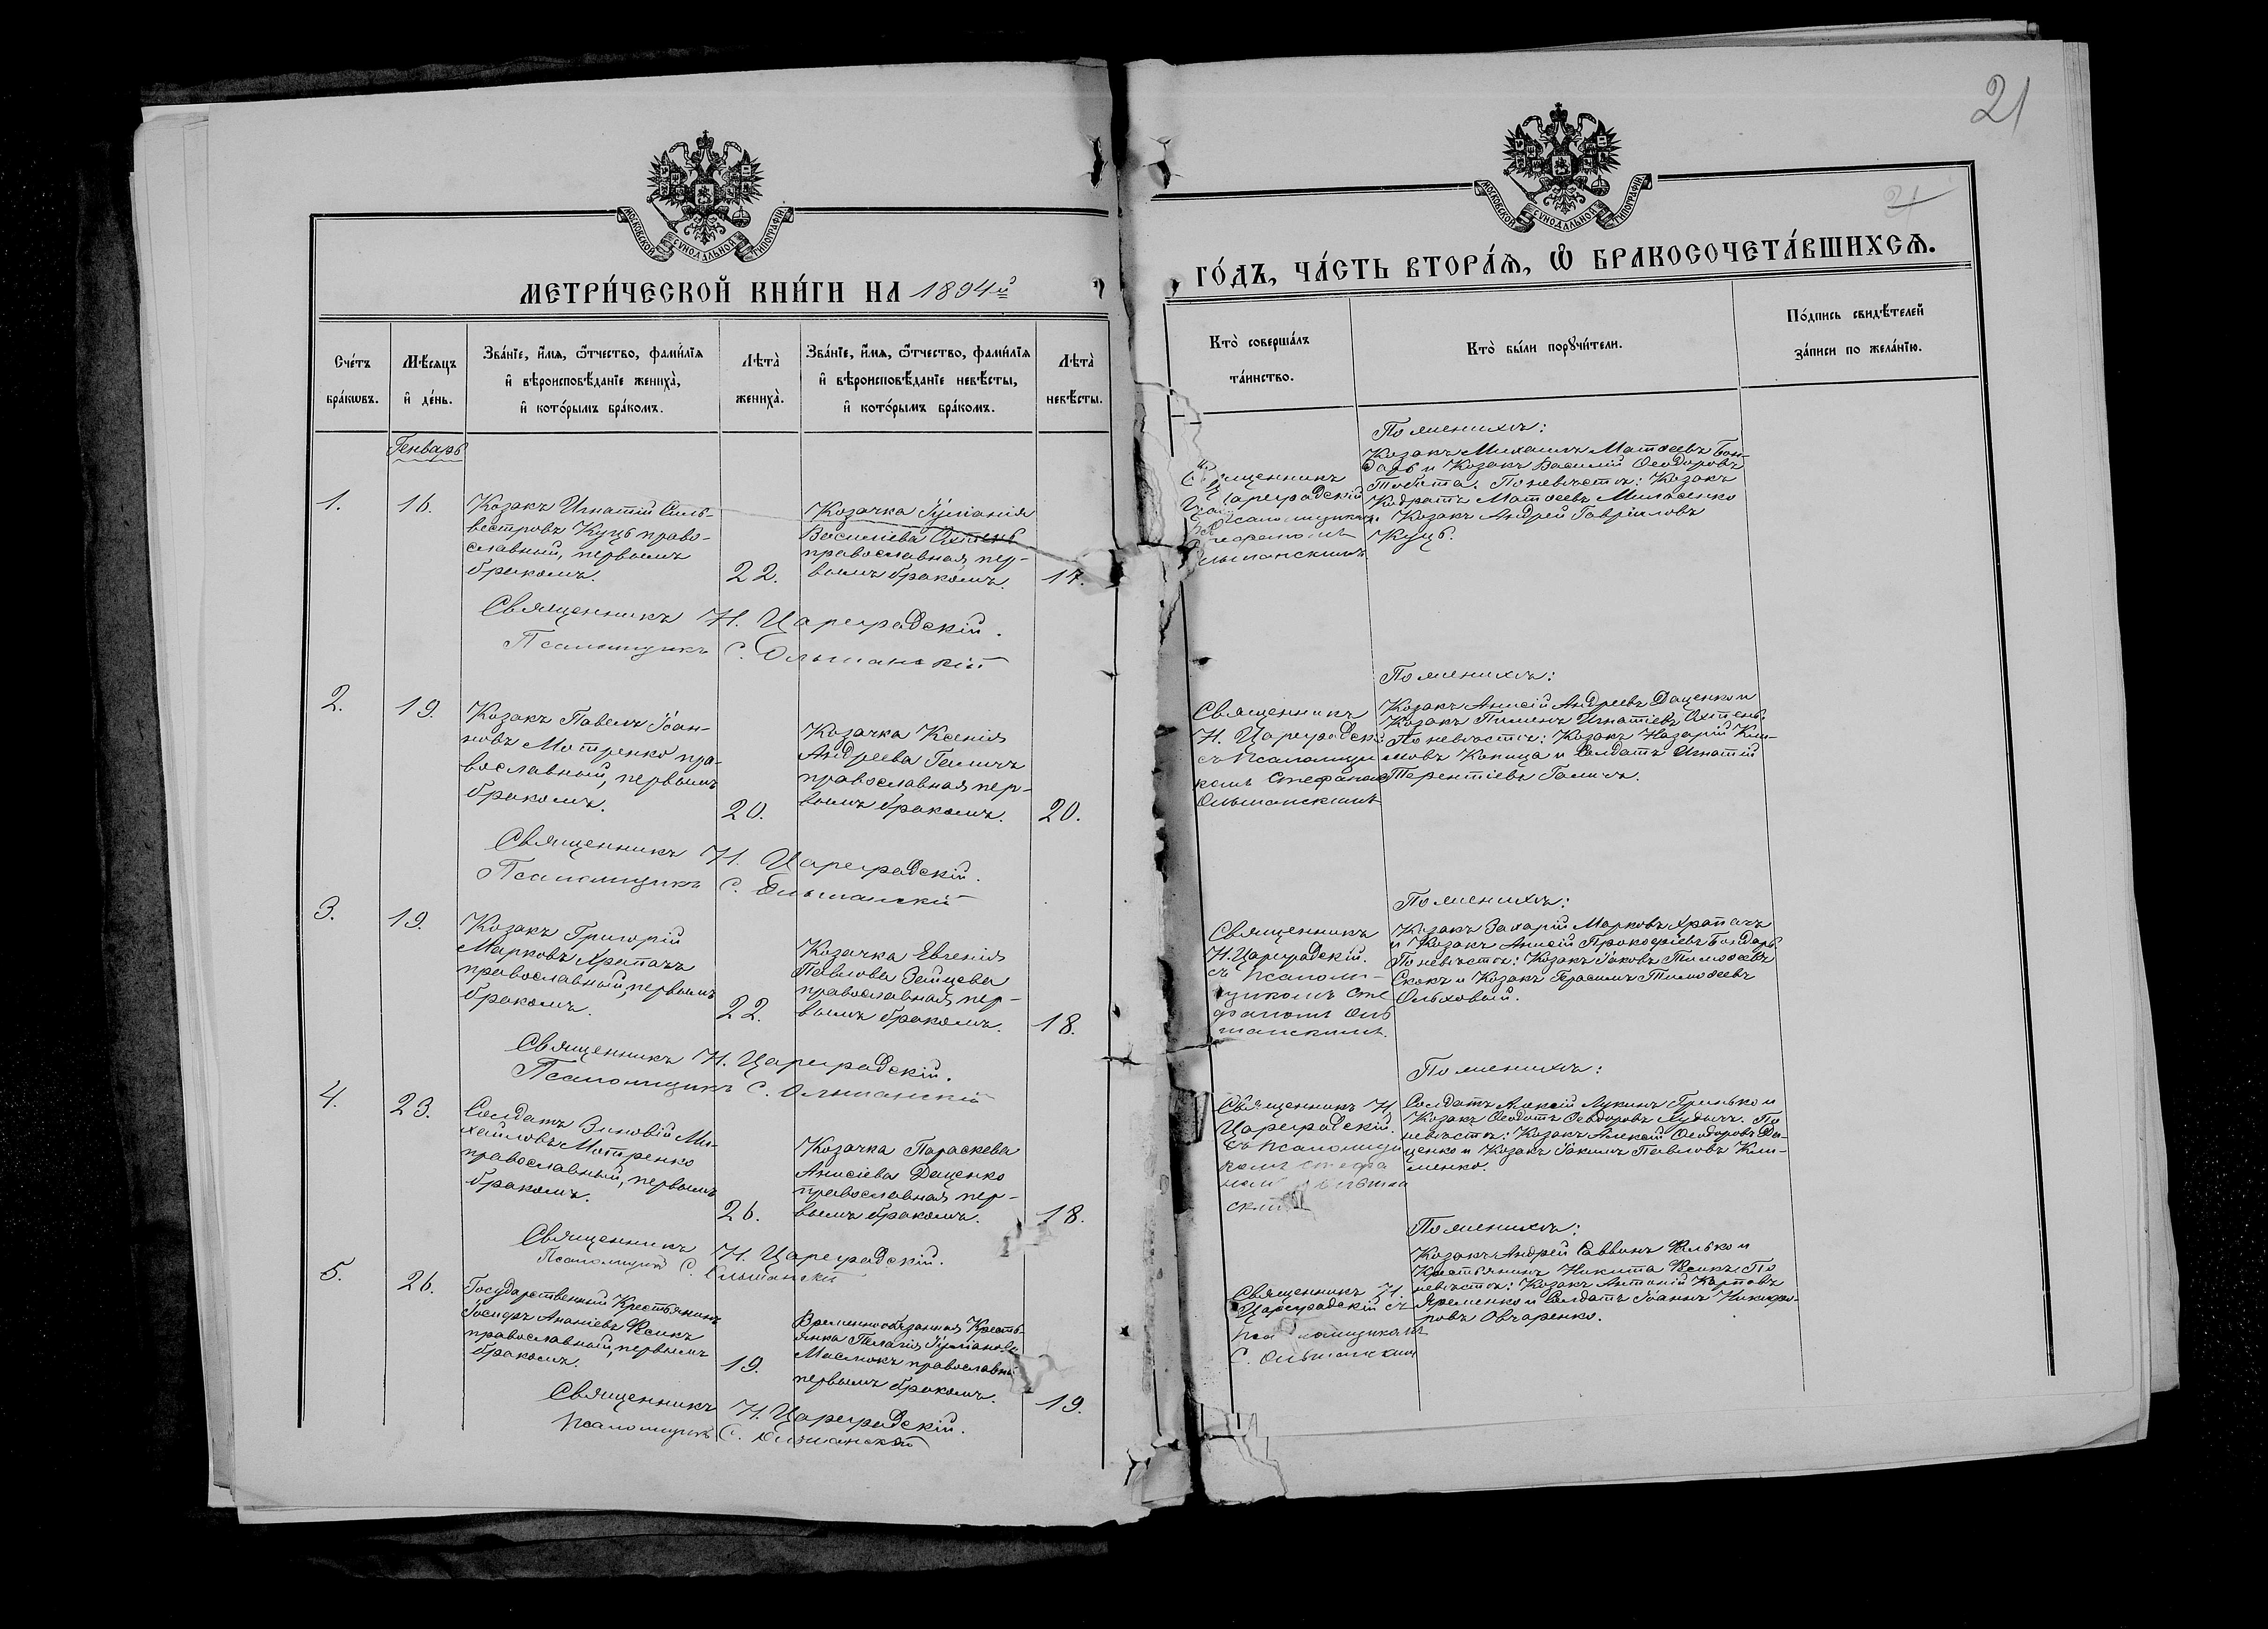 21
21
МОСКОВСКОЙ СѴНОДАЛЬНОЙ ТИПОГРАФІИ
МОСКОВСКОЙ СѴНОДАЛЬНОЙ ТИПОГРАФІИ
МЕТРИ́ЧЕСКОЙ КНИ́ГИ НА 1894й
ГО́ДЪ, ЧА́СТЬ ВТОРА́Я, Ѡ БРАКОСОЧЕТА́ВШИХСЯ.
Сче́тъ
бра́кѡвъ.
Мѣ́сяцъ
и҆ де́нь.
Зва́нїе, и҆́мя, ѻ҆́тчество, фами́лїя
и҆ вѣроисповѣ́данїе жениха̀,
и҆ кото́рымъ бра́комъ.
Лѣта̀
жениха̀.
Зва́нїе, и҆́мя, ѻ҆́тчество, фами́лїя
и҆ вѣроисповѣ́данїе невѣ́сты,
и҆ кото́рымъ бра́комъ.
Лѣта̀
невѣ́сты.
Кто̀ соверша́лъ
та́инство.
Кто̀ бы́ли порꙋчи́тели.
По́дпись свидѣ́телей
за́писи по жела́нїю.
Генварь
1.
16.
Козакъ Игнатій Силь-
вестровъ Куцъ право-
славный, первымъ
бракомъ.
22.
Козачка Іуліанія
Василіева Охтень
православная пер-
вымъ бракомъ.
17.
Священникъ
Цареградскій
Ольшанскимъ
По женихѣ:
Козакъ Михаилъ Матѳеевъ Бон-
дарь и Козакъ Василій Ѳеодоровъ
По невѣстѣ: Козакъ
Кодратъ Матѳеевъ Миласенко
Козакъ Андрей Гавріиловъ
Куцъ.
Священникъ Н. Цареградскій.
Псаломщикъ С. Ольшанскій
2.
19.
Козакъ Павелъ Іоан-
новъ Мотренко пра-
вославный, первымъ
бракомъ.
20.
Козачка Ксенія
Андреева Галичъ
православная пер-
вымъ бракомъ.
20.
Священникъ
Н. Цареградскій
съ Псаломщи
комъ Стефаномъ
Ольшанскимъ
По женихѣ:
Козакъ Анисій Андреевъ Даценко и
Козакъ Пименъ Игнатіевъ Охтень.
По невѣстѣ: Козакъ Назарій Кли-
мовъ Копица и Солдатъ Игнатій
Терентіевъ Галичъ.
Священникъ Н. Цареградскій.
Псаломщикъ С. Ольшанскій
3.
19.
Козакъ Григорій
Марковъ Храпачъ
православный, первымъ
бракомъ.
22.
Козачка Евгенія
Павлова Зайцева
православная пер-
вымъ бракомъ.
18.
Священникъ
Н. Цареградскій.
съ Псалом-
щикомъ Сте
фаномъ Оль
шанскимъ.
По женихѣ:
Козакъ Захарій Марковъ Храпачъ
и Козакъ Анисій Прокофіевъ Бондарь
По невѣстѣ: Козакъ Іаковъ Тимоѳеевъ
Скокъ и Козакъ Герасимъ Тимоѳеевъ
Ольховый.
Священникъ Н. Цареградскій.
Псаломщикъ С. Ольшанскій
4.
23.
Солдатъ Зиновій Ми-
хайловъ Мотренко
православный, первымъ
бракомъ.
26.
Козачка Параскева
Анисіева Даценко
православная пер-
вымъ бракомъ.
18.
Священникъ Н.
Цареградскій.
съ Псаломщи
комъ Стефа
номъ Ольшан
скимъ
По женихѣ:
Солдатъ Алексій Лукинъ Гринько и
Козакъ Ѳеодотъ Ѳеодоровъ Кудичъ. По
невѣстѣ: Козакъ Алексій Ѳеодоровъ Да-
ценко и Козакъ Іакимъ Павловъ Кли-
менко.
Священникъ Н. Цареградскій.
Псаломщикъ С. Ольшанскій
5.
26.
Государственный Крестьянинъ
Іосифъ Ананіевъ Ѳесикъ
православный, первымъ
бракомъ.
19.
Временнообязанная Кресть-
янка Пелагія Іуліанова
Маслюкъ православн
первымъ бракомъ.
19.
Священникъ Н.
Цареградскій съ
Псаломщикомъ
С. Ольшанским
По женихѣ:
Козакъ Андрей Саввинъ Филько и
Крестьянинъ Никита Ѳесикъ. По
невѣстѣ: Козакъ Антоній Карповъ
Яременко и Солдатъ Іоаннъ Никифо-
ровъ Овчаренко.
Священникъ Н. Цареградскій.
Псаломщикъ С. Ольшанскій